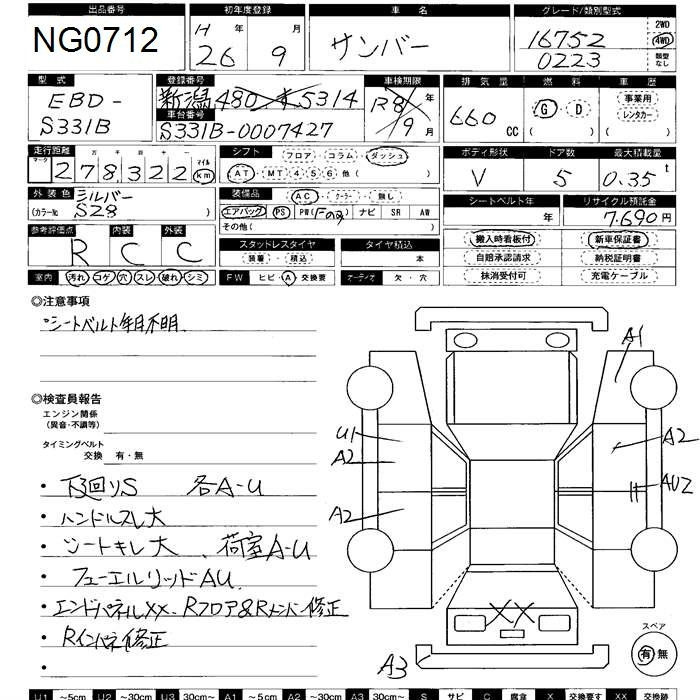 出品番号 初年度登録 車名 グレード/類別型式
NG0712 H 26年 9月 サンバー 16752 0223 2WD 4WD 類型なし
型式 登録番号 車検期限 排気量 燃料 車歴
EBD-S331B 新潟480 5314 R8年 9月 660cc G・D ( ) 事業用 レンタカー ( )
車台番号
S331B-0007427
走行距離 シフト フロア・コラム・ダッシュ ボディ形状 ドア数 最大積載量
マーク 十万千百十一 278322 マイル km AT・MT 4 5 6 他( ) V 5 0.35t
外装色 シルバー 装備品 AC・クーラー・無し シートベルト年 リサイクル預託金
(カラーNo S28 ) エアバッグ PS PW(Fのみ) ナビ SR AW 年 7.690円
その他( )
参考評価点 内装 外装 スタッドレスタイヤ タイヤ積込 搬入時看板付 新車保証書
R C C 装着・積込 本 自賠承認請求 納税証明書
室内 汚れ・コゲ・穴・スレ・破れ・シミ FW ヒビ・A・交換要 オーディオ 欠・穴 抹消受付可 充電ケーブル
◎注意事項
・シートベルト年月不明.
◎検査員報告
エンジン関係
(異音・不調等)
タイミングベルト
交換 有・無
・下廻りS 各A-U
・ハンドルスレ大
・シートキレ大、荷室A-U
・フューエルリッドAU.
・エンドパネルXX、Rフロア&Rメンバー修正
・Rインパネ修正
・
A1
U1 A2
A2 AU2
A2
XX
A3
スペア
有 無
U1 ～5cm U2 ～30cm U3 30cm～ A1 ～5cm A2 ～30cm A3 30cm～ S サビ C 腐食 X 交換要す XX 交換跡